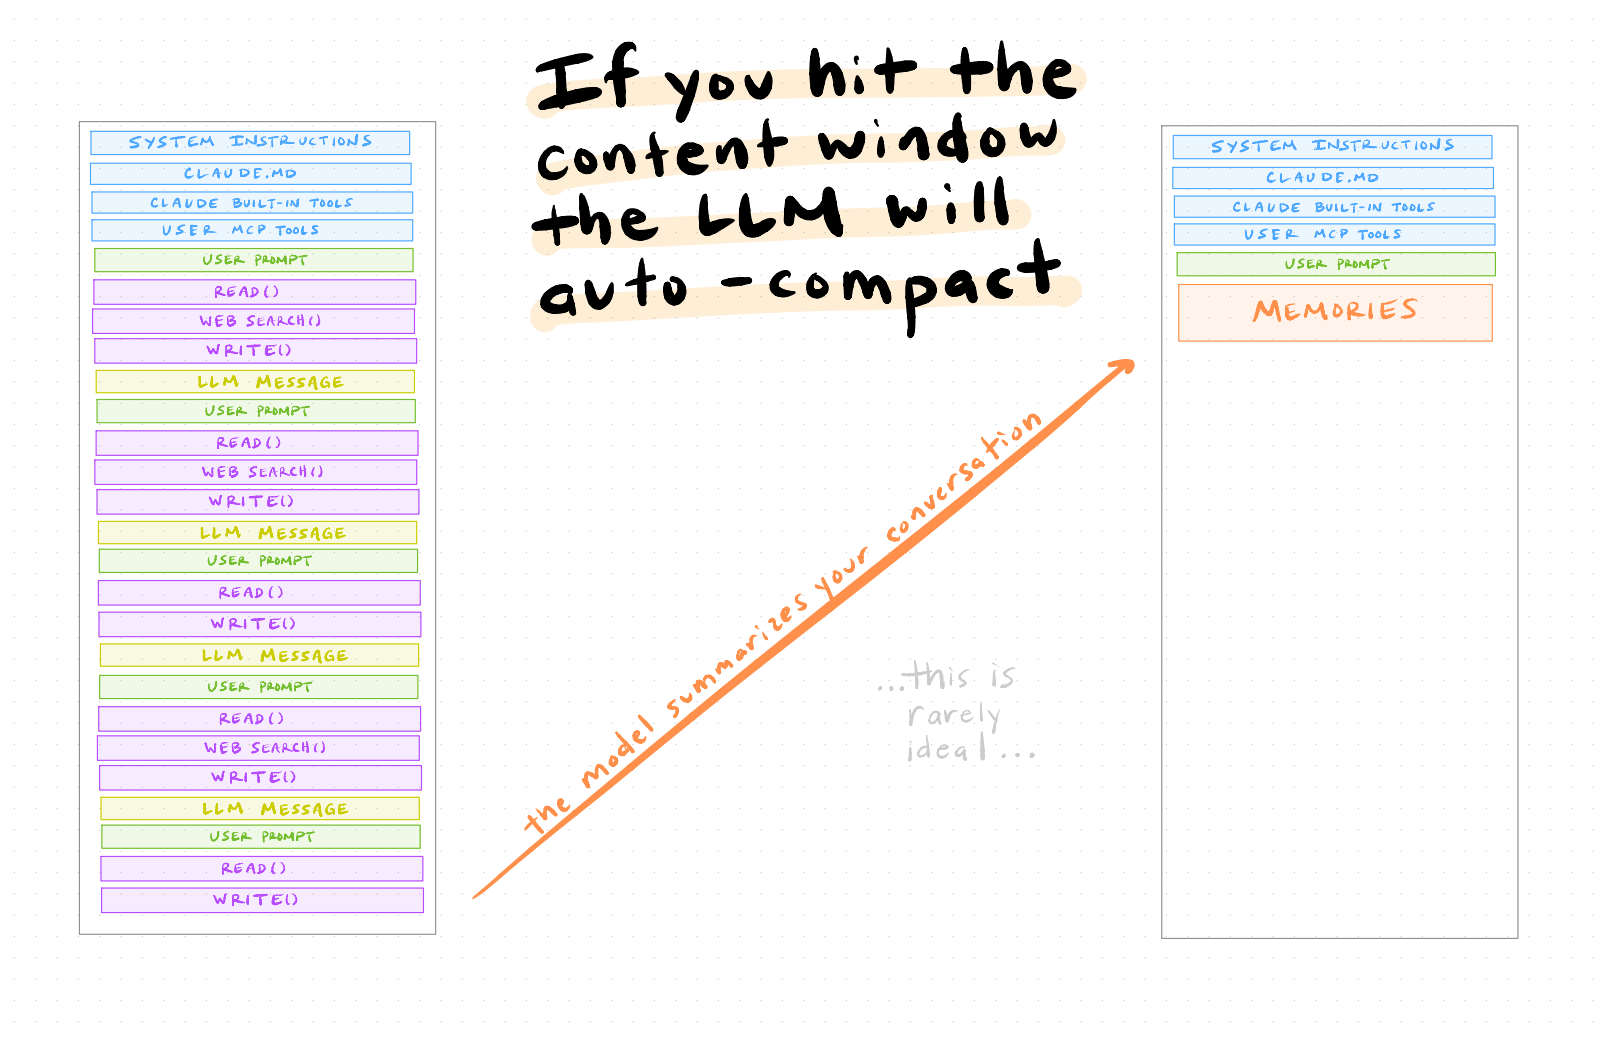 If you hit the
content window
the LLM will
auto-compact
SYSTEM INSTRUCTIONS
CLAUDE.MD
CLAUDE BUILT-IN TOOLS
USER MCP TOOLS
USER PROMPT
READ()
WEB SEARCH()
WRITE()
LLM MESSAGE
USER PROMPT
READ()
WEB SEARCH()
WRITE()
LLM MESSAGE
USER PROMPT
READ()
WRITE()
LLM MESSAGE
USER PROMPT
READ()
WEB SEARCH()
WRITE()
LLM MESSAGE
USER PROMPT
READ()
WRITE()
the model summarizes your conversation
...this is
rarely
ideal...
SYSTEM INSTRUCTIONS
CLAUDE.MD
CLAUDE BUILT-IN TOOLS
USER MCP TOOLS
USER PROMPT
MEMORIES